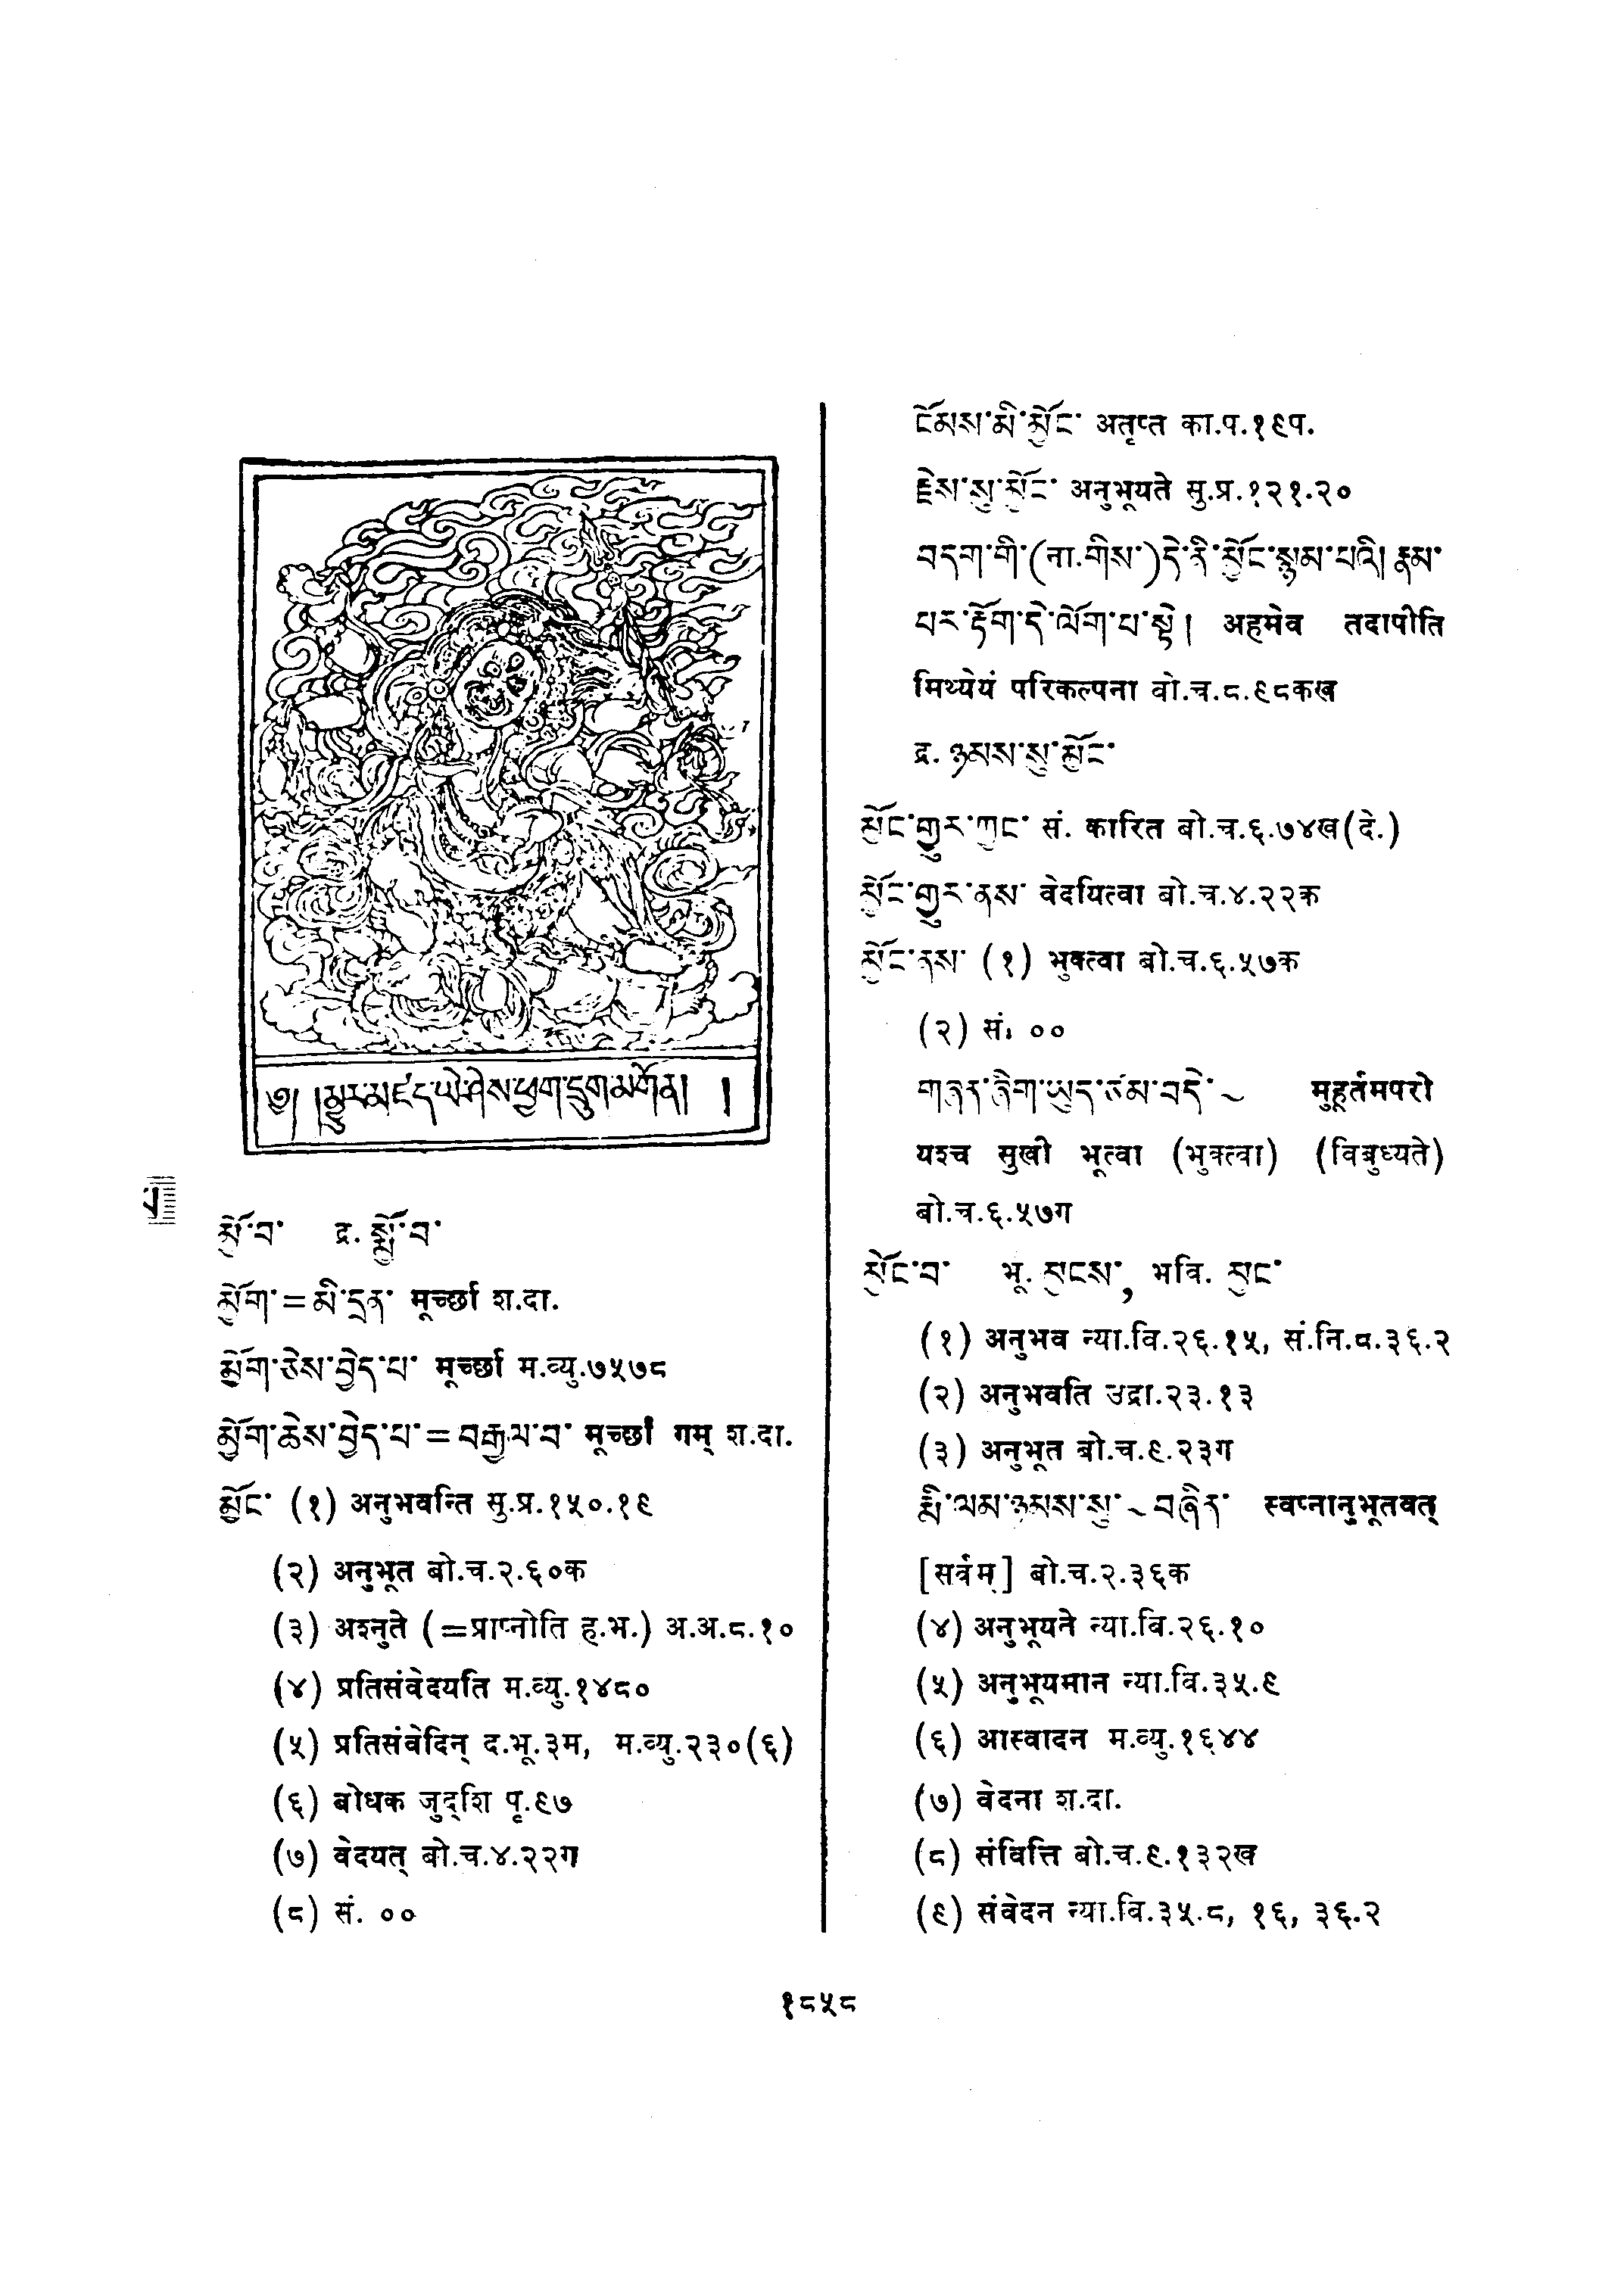 ༄། །མྱུར་མཛད་ཡེ་ཤེས་ཕྱག་དྲུག་མགོན། །
མྱོ་བ་ द्र. སྨྱོ་བ་
མྱོག་=མི་དྲན་ मूर्च्छा श.दा.
མྱོག་ཅེས་བྱེད་པ་ मूर्च्छा म.व्यु.७५७८
མྱོག་ཆེས་བྱེད་པ་=བརྒྱལ་བ་ मूर्च्छां गम् श.दा.
མྱོང་ (१) अनुभवन्ति सु.प्र.१५०.१९
(२) अनुभूत बो.च.२.६०क
(३) अश्नुते (=प्राप्नोति ह.भ.) अ.अ.८.१०
(४) प्रतिसंवेदयति म.व्यु.१४८०
(५) प्रतिसंवेदिन् द.भू.३म, म.व्यु.२३०(६)
(६) बोधक जुद्शि पृ.९७
(७) वेदयत् बो.च.४.२२ग
(८) सं. ००
ངོམས་མི་མྱོང་ अतृप्त का.प.१९प.
རྗེས་སུ་མྱོང་ अनुभूयते सु.प्र.१२१.२०
བདག་གི་(ना.གིས་)དེ་ནི་མྱོང་སྙམ་པའི། རྣམ་
པར་རྟོག་དེ་ལོག་པ་སྟེ། अहमेव तदापीति
मिथ्येयं परिकल्पना बो.च.८.९८कख
द्र. ཉམས་སུ་མྱོང་
མྱོང་གྱུར་ཀྱང་ सं. कारित बो.च.६.७४ख(दे.)
མྱོང་གྱུར་ནས་ वेदयित्वा बो.च.४.२२क
མྱོང་ནས་ (१) भुक्त्वा बो.च.६.५७क
(२) सं. ००
གཞན་ཞིག་ཡུད་ཙམ་བདེ་~ मुहूर्तमपरो
यश्च सुखी भूत्वा (भुक्त्वा) (विबुध्यते)
बो.च.६.५७ग
མྱོང་བ་ भू. མྱངས་, भवि. མྱང་
(१) अनुभव न्या.वि.२६.१५, सं.नि.८.३६.२
(२) अनुभवति उद्रा.२३.१३
(३) अनुभूत बो.च.९.२३ग
རྨི་ལམ་ཉམས་སུ་~བཞིན་ स्वप्नानुभूतवत्
[सर्वम्] बो.च.२.३६क
(४) अनुभूयते न्या.वि.२६.१०
(५) अनुभूयमान न्या.वि.३५.९
(६) आस्वादन म.व्यु.१६४४
(७) वेदना श.दा.
(८) संवित्ति बो.च.९.१३२ख
(९) संवेदन न्या.वि.३५.८, १६, ३६.२
१८५८